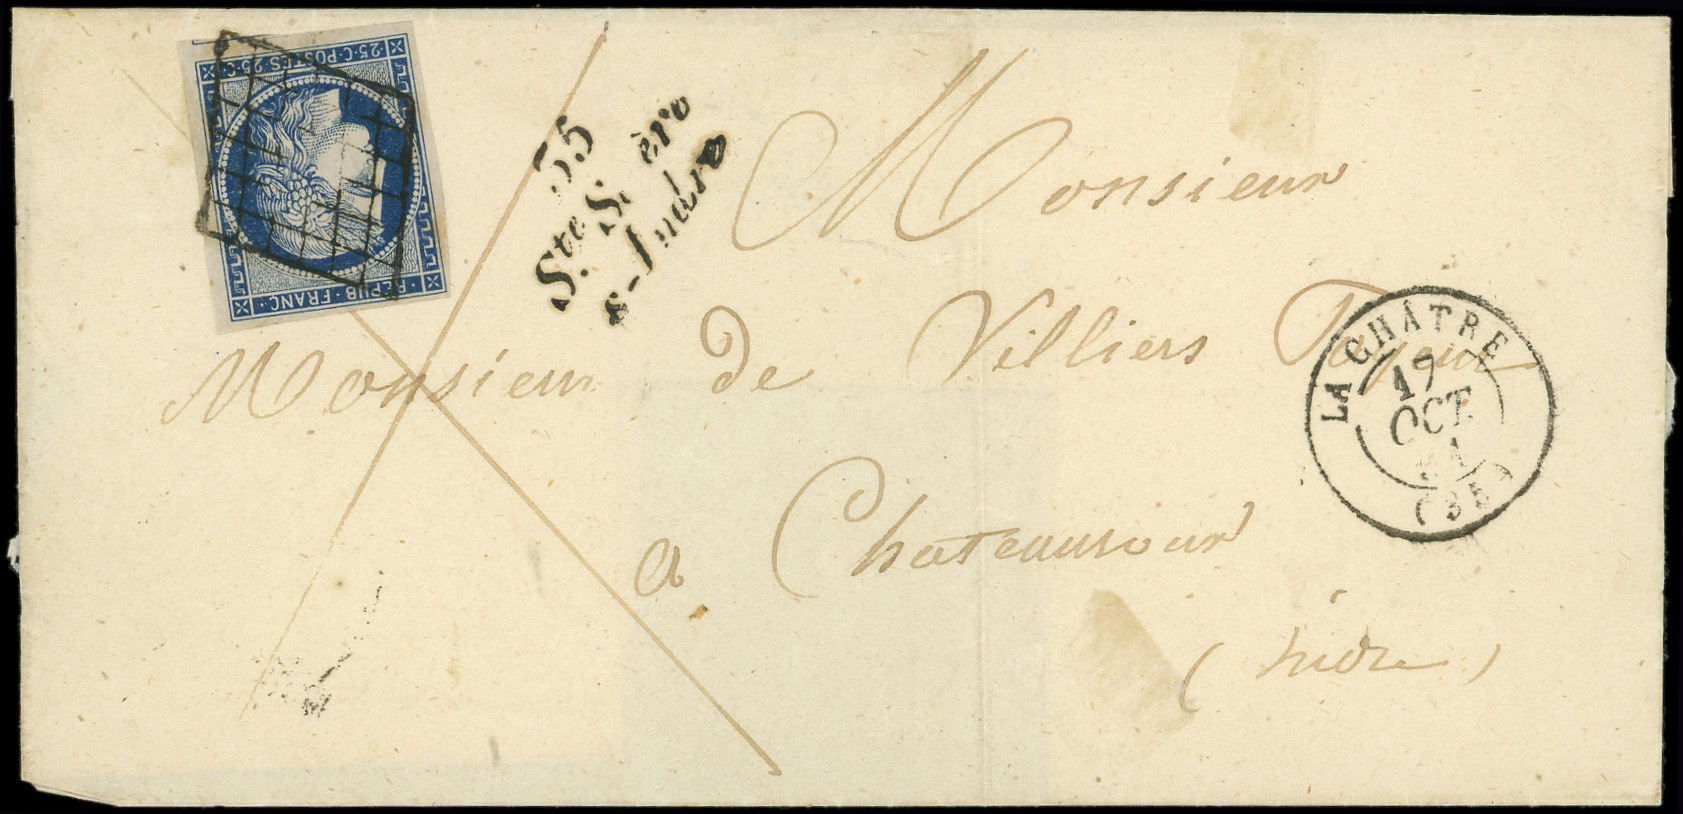 25·C·POSTES·25·C
·REPUB·FRANC·
35
Ste S. ère
s-Indre
Monsieur
Monsieur de Villiers Payeur
a Chateauroux
(indre)
LA CHÂTRE
17
OCT
51
(35)